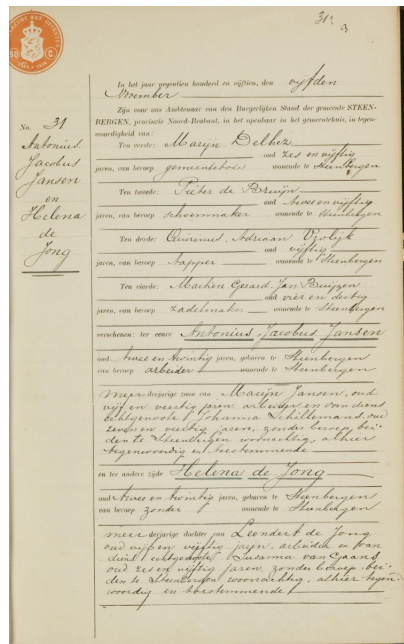 31
In het jaar negentien honderd en vijftien, den vijfden
November
Zijn voor ons Ambtenaar van den Burgerlijken Stand der gemeente STEEN-
BERGEN, provincie Noord-Brabant, in het openbaar in het gemeentehuis, in tegen-
woordigheid van:
No. 31
Antonius
Jacobus
Jansen
en
Helena
de
Jong
Ten eerste: Marijn Delhez
oud zes en vijftig
jaren, van beroep gemeentebode wonende te Steenbergen
Ten tweede: Pieter de Bruijn
oud twee en vijftig
jaren, van beroep schoenmaker wonende te Steenbergen
Ten derde: Quirinus Adriaan
oud vijftig
jaren, van beroep tapper wonende te Steenbergen
Ten vierde: Gerard Jan
oud vier en dertig
jaren, van beroep zadelmaker wonende te Steenbergen
verschenen: ter eenre Antonius Jacobus Jansen
oud twee en twintig jaren, geboren te Steenbergen
van beroep arbeider wonende te Steenbergen
meerderjarige zoon van Marijn Jansen, oud
vijf en veertig jaren arbeider en van diens
echtgenoote Johanna Schillemans, oud
zeven en veertig jaren, zonder beroep, bei-
den te Steenbergen woonachtig, alhier
tegenwoordig en toestemmende
en ter andere zijde Helena de Jong
oud twee en twintig jaren, geboren te Steenbergen
van beroep zonder wonende te Steenbergen
meerderjarige dochter van Leendert de Jong
oud vijf en vijftig jaren, arbeider en van
diens echtgenoote Susanna van Gaans,
oud zes en vijftig jaren, zonder beroep, bei-
den te Steenbergen woonachtig, alhier tegen-
woordig en toestemmende